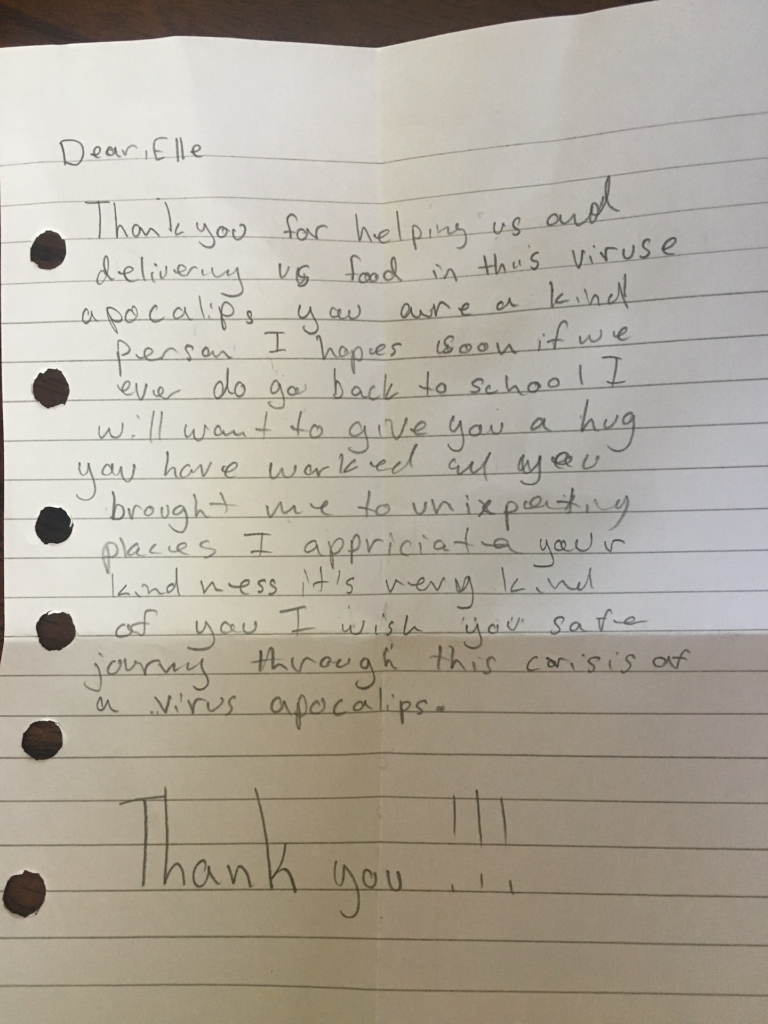 Dear, Elle
Thank you for helping us and
delivering us food in this viruse
apocalips you are a kind
person I hopes soon if we
ever do go back to school I
will want to give you a hug
you have worked all you
brought me to unixpecting
places I appriciate your
kindness it's very kind
of you I wish you safe
journy through this corisis of
a virus apocalips.
Thank you !!!